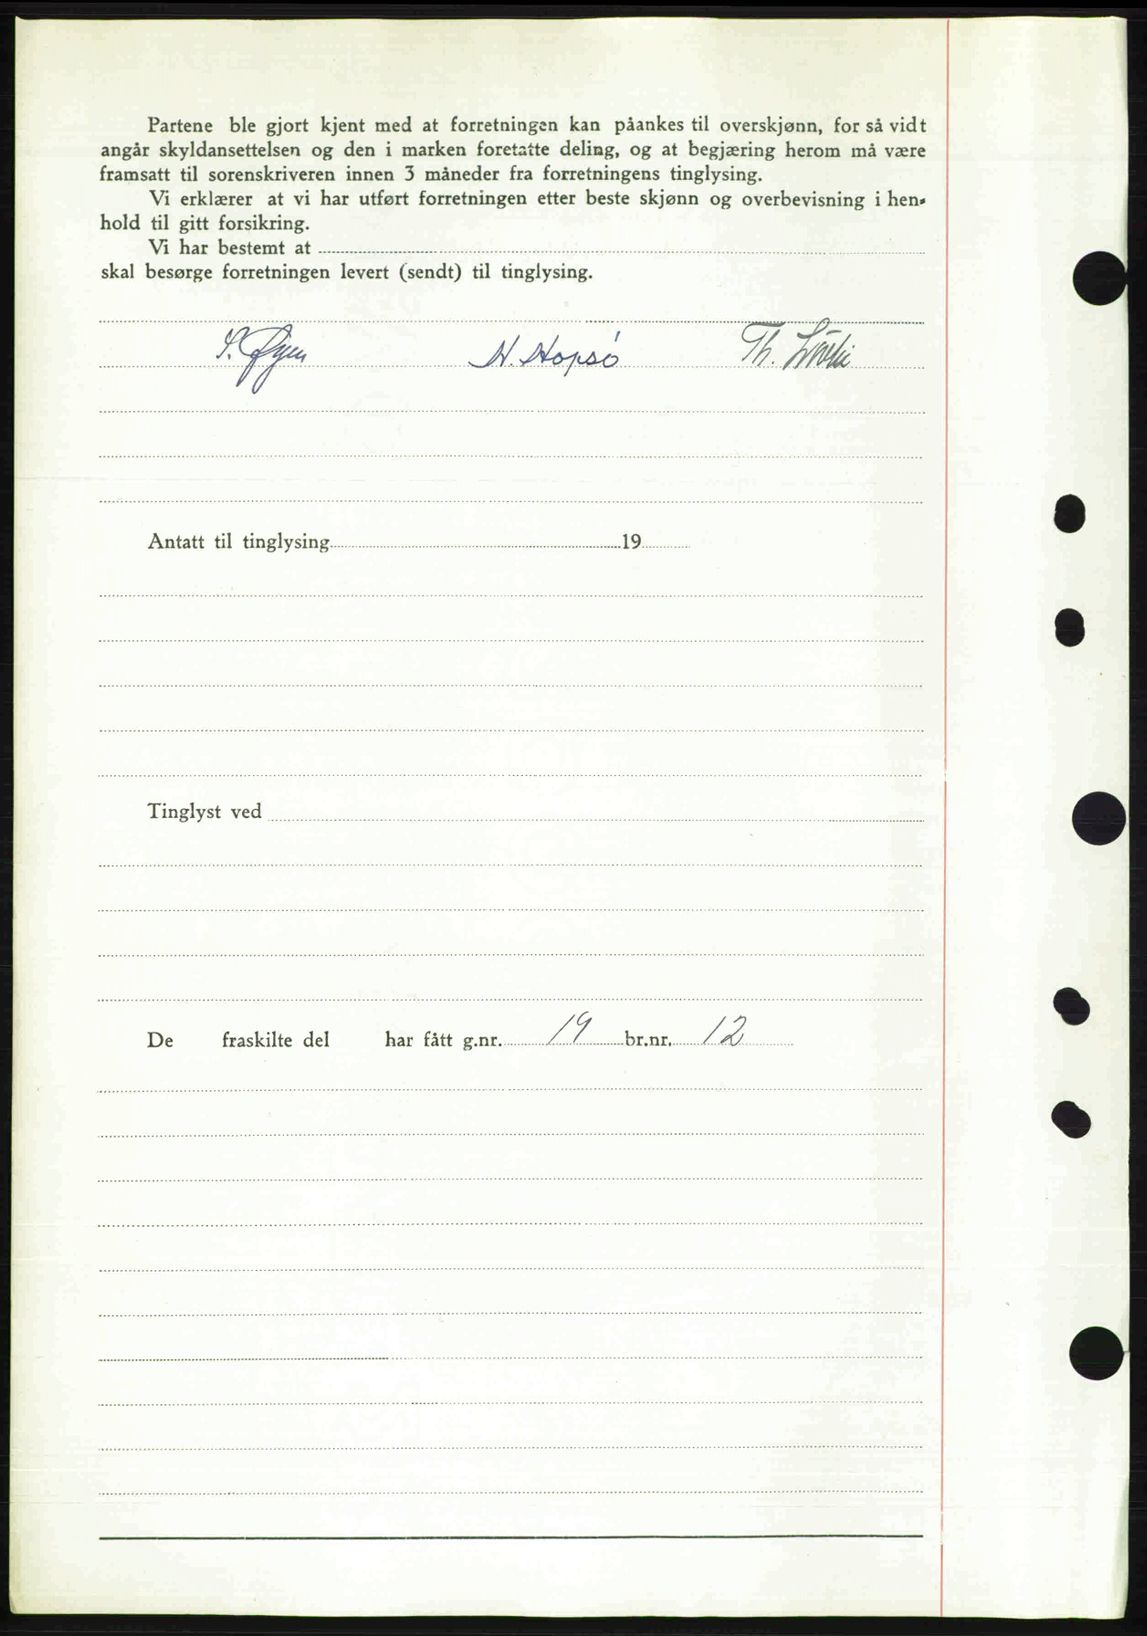 Partene ble gjort kjent med at forretningen kan påankes til overskjønn, for så vidt
angår skyldansettelsen og den i marken foretatte deling, og at begjæring herom må være
framsatt til sorenskriveren innen 3 måneder fra forretningens tinglysing.
Vi erklærer at vi har utført forretningen etter beste skjønn og overbevisning i hen-
hold til gitt forsikring.
Vi har bestemt at
skal besørge forretningen levert (sendt) til tinglysing.
S. Øyen N. Hopsö Th.
Antatt til tinglysing 19
Tinglyst ved
De fraskilte del har fått g.nr. 19 br.nr. 12